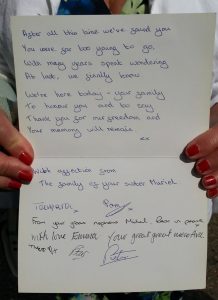 After all this time we've found you
You were far too young to go,
With many years spent wondering
At last, we finally know.
We're here today - your family
To honour you and to say
Thank you for our freedom and
Your memory will remain
xx
With affection from
The family of your sister Muriel
From your great nephews
with love Emma Your great great niece